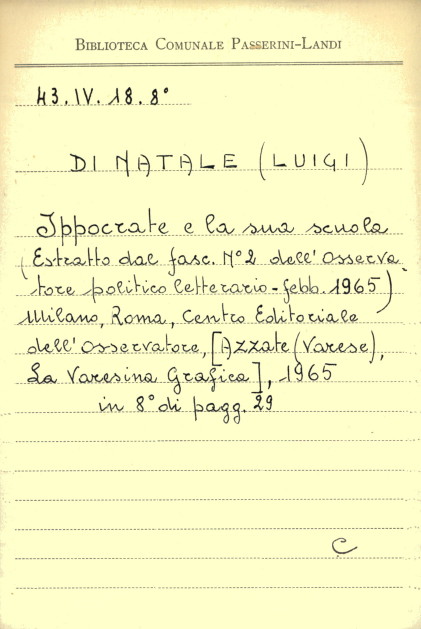 BIBLIOTECA COMUNALE PASSERINI-LANDI
43.IV.18.8°
DI NATALE (LUIGI)
Ippocrate e la sua scuola
(Estratto dal fasc. N°2 dell'Osserva
tore politico letterario - febb. 1965)
Milano, Roma, Centro Editoriale
dell'Osservatore, [Azzate (Varese),
La Varesina Grafica], 1965
in 8° di pagg. 29
C